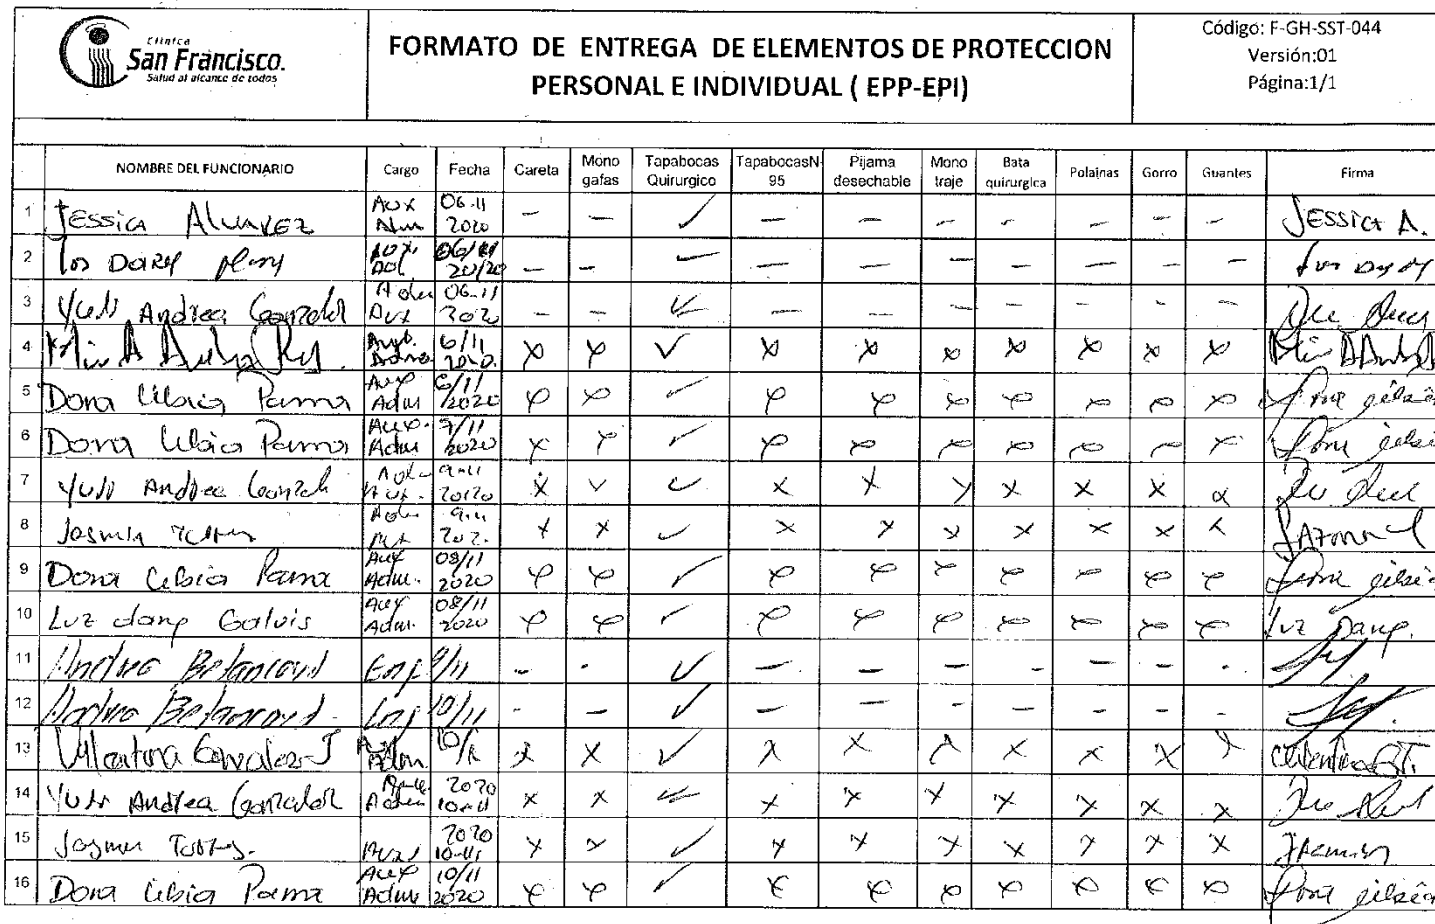 Clínica
San Francisco.
Salud al alcance de todos
FORMATO DE ENTREGA DE ELEMENTOS DE PROTECCION
PERSONAL E INDIVIDUAL ( EPP-EPI)
Código: F-GH-SST-044
Versión:01
Página:1/1
NOMBRE DEL FUNCIONARIO Cargo Fecha Careta Mono gafas Tapabocas Quirurgico TapabocasN-95 Pijama desechable Mono traje Bata quirurgica Polainas Gorro Guantes Firma
1 Jessica Alvarez Aux 06-11 2020 — — ✓ — — — — — — — Jessica A.
2 Aux. 06/11 2020 — — ✓ — — — — — — —
3 Yuli Andrea Gonzalez Adm Aux 06-11 2020 — — ✓ — — — — — — —
4 6/11 2020. x x ✓ x x x x x x x
5 Dora Libia Parma Aux Adm 6/11 2020 x x ✓ x x x x x x x
6 Dora Libia Parma Aux. Adm 9/11 2020 x x ✓ x x x x x x x
7 Yuli Andrea Gonzalez Adm Aux. 9-11 2020 x x ✓ x x x x x x x
8 Jasmin Aux 9-11 202. x x ✓ x x x x x x x
9 Dora Libia Parma Aux Adm. 08/11 2020 x x ✓ x x x x x x x
10 Luz dany Galvis Aux Adm. 08/11 2020 x x ✓ x x x x x x x Luz Dany.
11 Andrea Betancourt Enf 9/11 — - ✓ — — — — — — -
12 Andrea Betancourt Enf 10/11 — — ✓ — — — — — — -
13 Valentina Gonzalez J Aux Adm. 10/11 x x ✓ x x x x x x x
14 Yuli Andrea Gonzalez Aux Adm 2020 10-11 x x ✓ x x x x x x x
15 Jasmin Torres. Aux 2020 10-11 x x ✓ x x x x x x x
16 Dora Libia Parma Aux Adm 10/11 2020 x x ✓ x x x x x x x